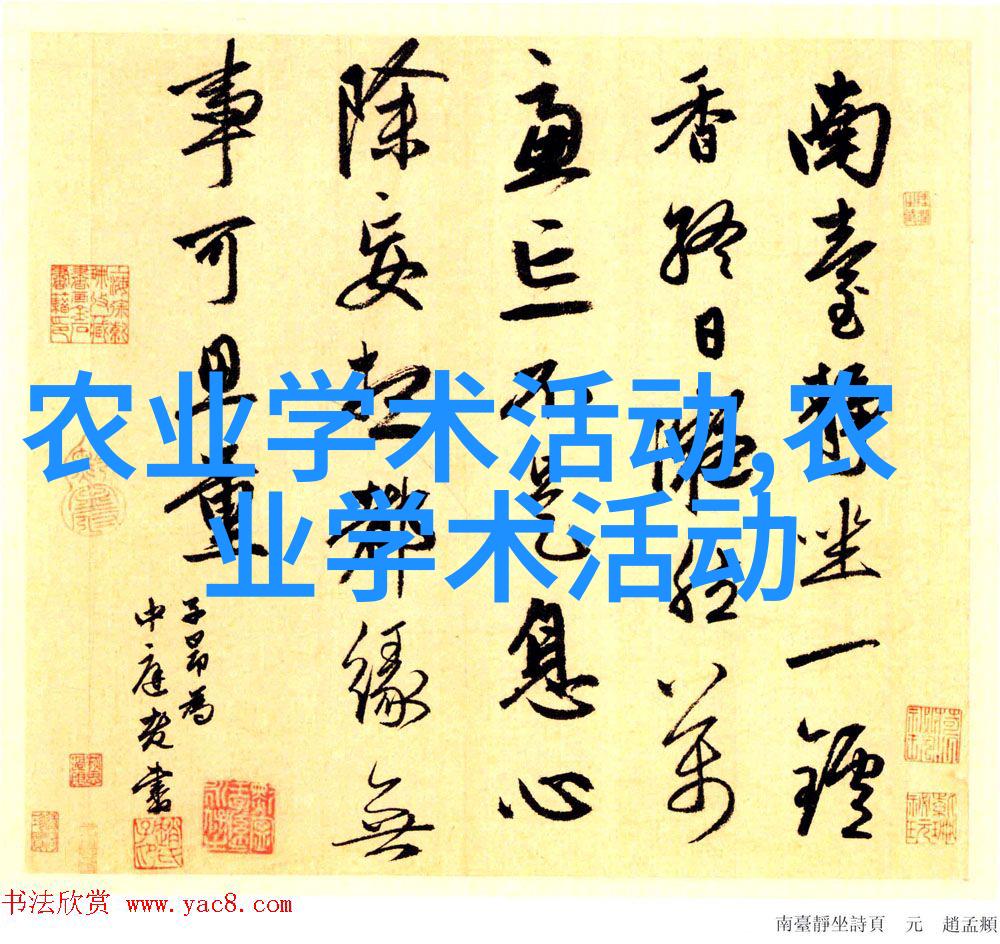 农业学术活动,农
业学术活动
南臺靜坐一鑪
香終日凝然萬
慮亡不是息心
除妄想都緣無
事可思量
子昂為
中庭老書
书法欣赏 www.yac8.com
南臺靜坐詩頁 元 趙孟頫